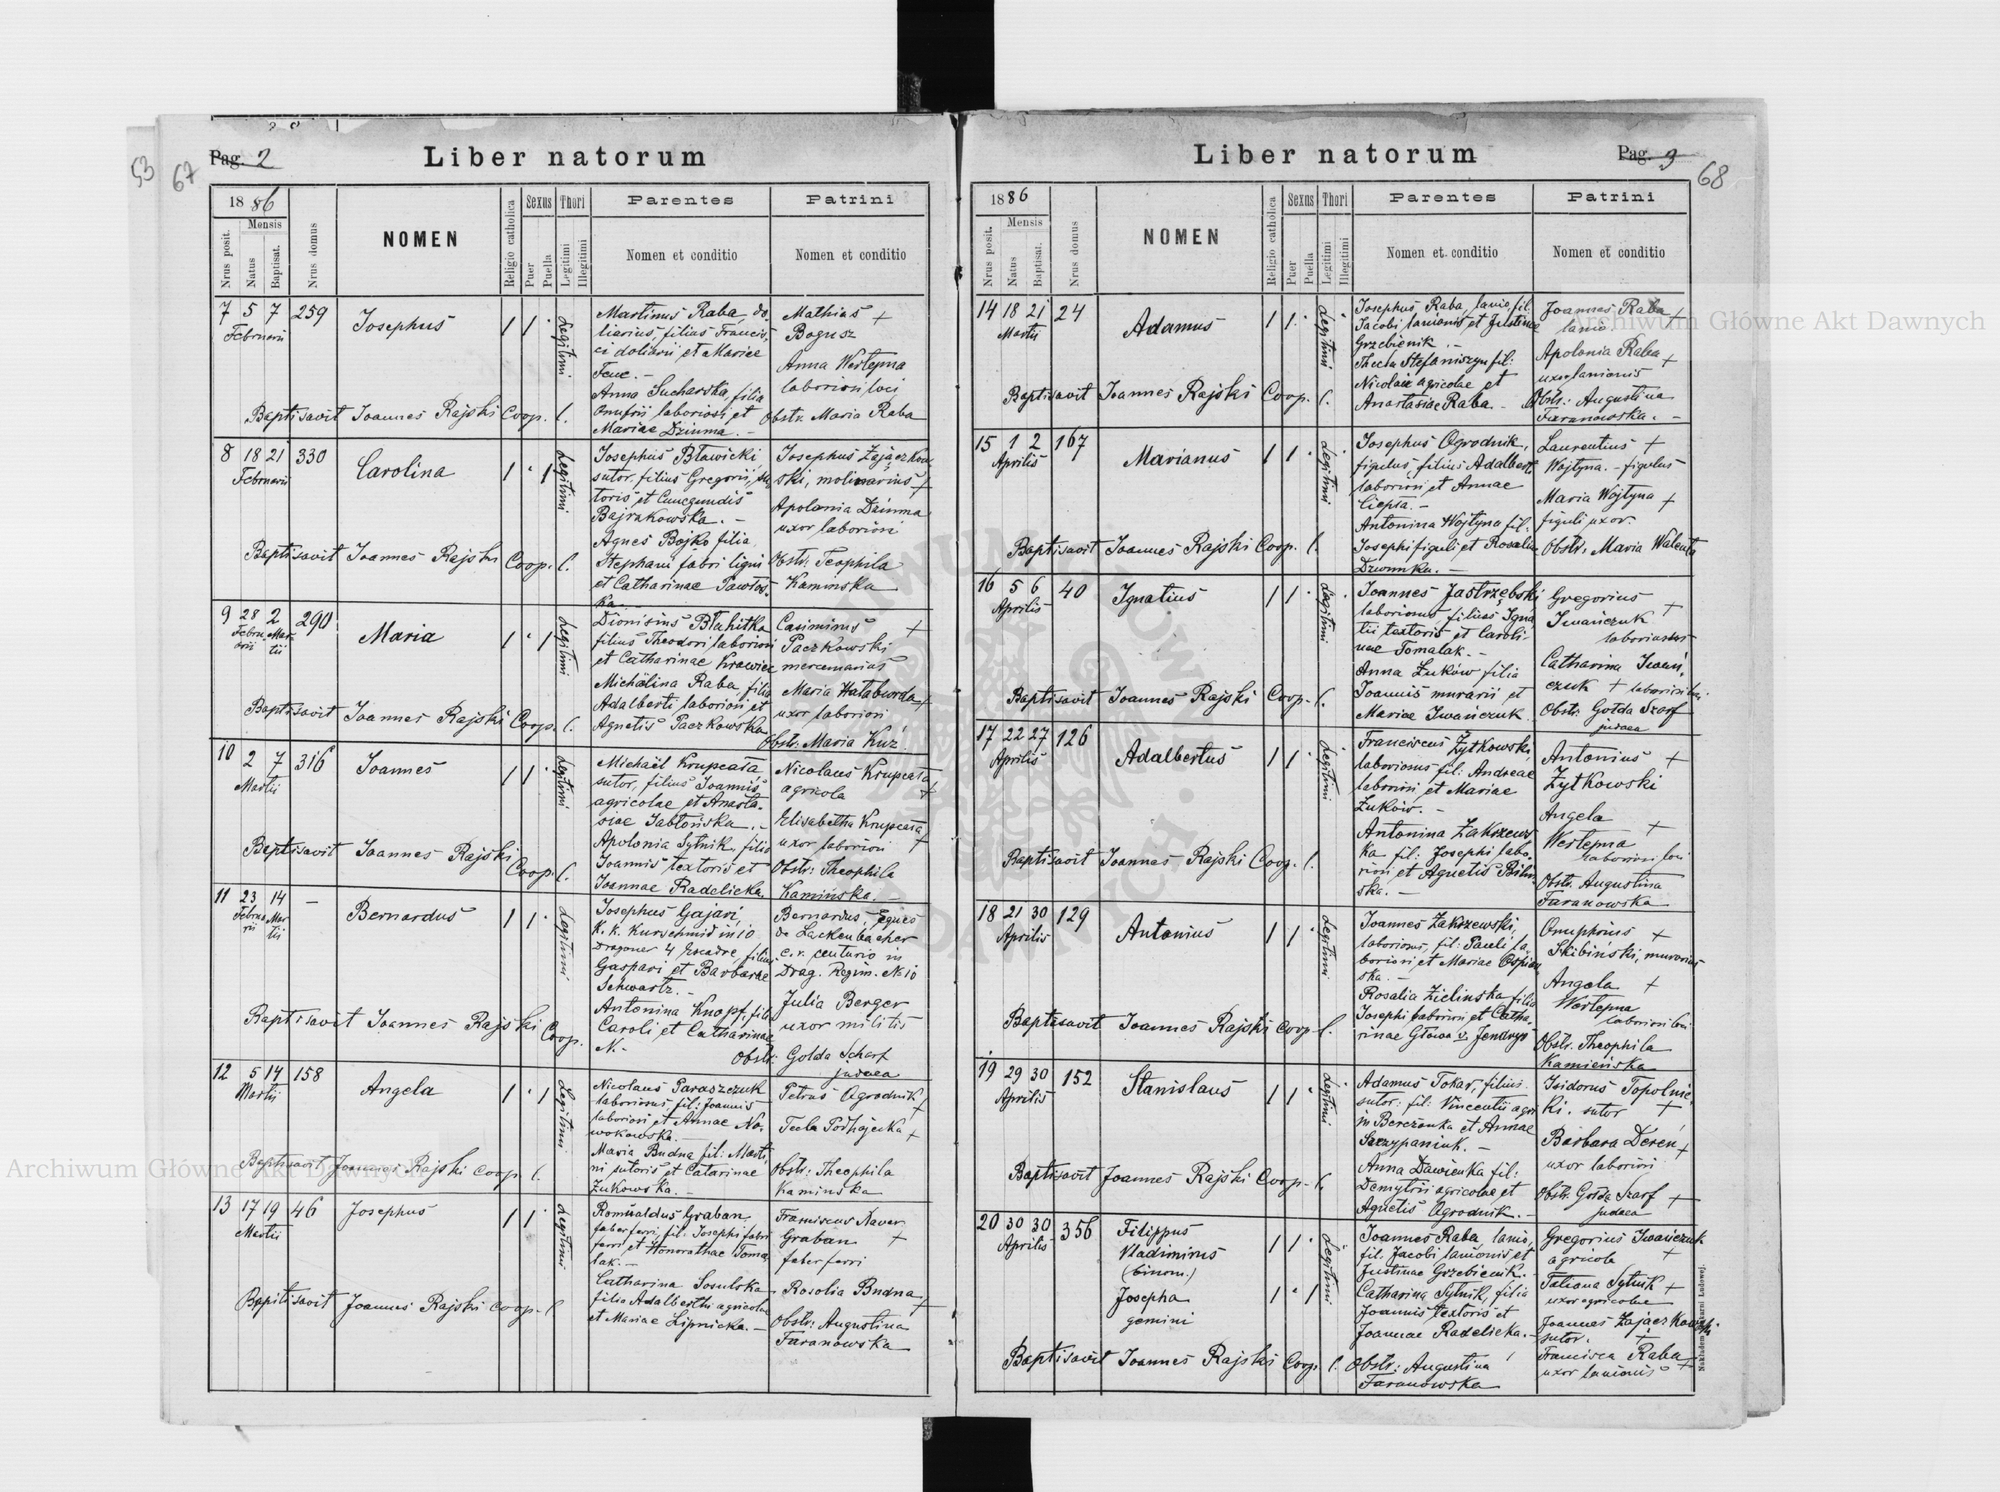 53
67
Pag. 2
Liber natorum
1886
Mensis
Nrus posit.
Natus
Baptisat.
Nrus domus
NOMEN
Religio catholica
Sexus
Puer
Puella
Thori
Legitimi
Illegitimi
Parentes
Nomen et conditio
Patrini
Nomen et conditio
7 5 7 259
Februarii
Josephus
1 1 ·
Legitimi
Martinus Raba, do-
liarius, filius Francis-
ci doliarii et Mariae
Anna Sucharska, filia
Onufrii laboriosi et
Mariae Dziuma. -
Mathias +
Bogusz
Anna Werlepna
laboriosi loci
Obstr. Maria Raba
Baptisavit Joannes Rajski Coop. l.
8 18 21 330
Februarii
Carolina
1 · 1
Legitimi
Josephus Bławicki
sutor, filius Gregorii, su-
toris et Cunegundis
Bajrakowska. -
Agnes Bojko filia
Stephani fabri ligni
et Catharinae Pawłos-
ka
Josephus Zajączkow-
ski, molinarius +
Apolonia Dziuma
uxor laboriosi
Obstr. Teophila
Kaminska
Baptisavit Joannes Rajski Coop. l.
9 28 2 290
Februarii Martii
Maria
1 · 1
Legitimi
Dionisius Błahitka
filius Theodori laboriosi
et Catharinae Krawiec
Michalina Raba, filia
Adalberti laboriosi et
Agnetis Paczkowska
Casimirus +
Paczkowski
mercenarius
Maria Hałaburda +
uxor laboriosi
Obstr. Maria Kuź
Baptisavit Joannes Rajski Coop. l.
10 2 7 316
Martii
Joannes
1 1 ·
Legitimi
Michaël Krupcała
sutor, filius Joannis
agricolae et Anasta-
siae Jabłońska. -
Apolonia Sytnik, filia
Joannis textoris et
Joannae Radelicka.
Nicolaus Krupcała
agricola +
Elisabetha Krupcała
uxor laboriosi +
Obstr. Theophila
Kamińska. -
Baptisavit Joannes Rajski
Coop. l.
11 23 14 -
Februarii Martii
Bernardus
1 1 ·
Legitimi
Josephus Gajari,
K. k. Kurschmid in 10
Dragoner 4 Escadre, filius
Gaspari et Barbarae
Schwartz. -
Antonina Knopf, filia
Caroli et Catharinae
N. -
Bernardus Eques
de Lackenbacher
c. r. centurio in
Drag. Regim. № 10
Julia Berger
uxor militis
Obstr. Golda Scharf
judaea
Baptisavit Joannes Rajski Coop.
12 5 14 158
Martii
Angela
1 · 1
Legitimi
Nicolaus Paraszczuk
laboriosus, fil: Joannis
laboriosi et Annae No-
wokowska. -
Maria Budna fil: Marti-
ni sutoris et Catarinae
Żukowska. -
Petrus Ogrodnik +
Tecla Podhajecka +
Obstr: Theophila
Kaminska
Baptisavit Joannes Rajski Coop. l.
13 17 19 46
Martii
Josephus
1 1 ·
Legitimi
Romualdus Graban
faber ferri, fil. Josephi fabri
ferri et Honorathae Toma-
lak. -
Catharina Somloka
filia Adalberthi agricolae
et Mariae Lipnicka. -
Franciscus Xaver
Graban +
faber ferri
Rosolia Budna +
Obstr: Augustina
Taranowska
Baptisavit Joannes Rajski Coop. l
68
Liber natorum
Pag. 3
1886
Mensis
Nrus posit.
Natus
Baptisat.
Nrus domus
NOMEN
Religio catholica
Sexus
Puer
Puella
Thori
Legitimi
Illegitimi
Parentes
Nomen et conditio
Patrini
Nomen et conditio
14 18 21 24
Martii
Adamus
1 1 ·
Legitimi
Josephus Raba, lanio, fil.
Jacobi lanionis et Justinae
Grzebienik. -
Thecla Stefaniszyn fil:
Nicolai agricolae et
Anastasiae Raba. -
Joannes Raba +
lanio.
Apolonia Raba +
uxor lanionis
Obstr: Augustina
Taranowska. -
Baptisavit Joannes Rajski Coop. l.
15 1 2 167
Aprilis
Marianus
1 1 ·
Legitimi
Josephus Ogrodnik,
figulus, filius Adalberti
laboriosi et Annae
Ciepła. -
Antonina Wojtyna fil:
Josephi figuli et Rosaliae
Laurentius +
Wojtyna. - figulus
Maria Wojtyna +
figuli uxor.
Obstr: Maria Walenta
Baptisavit Joannes Rajski Coop. l.
16 5 6 40
Aprilis
Ignatius
1 1 ·
Legitimi
Joannes Jastrzębski
laboriosus filius Igna-
tii textoris et Caroli-
nae Tomalak. -
Anna Żuków filia
Joannis murarii et
Mariae Iwańczuk
Gregorius +
Iwańczuk
laboriosus
Catharina Iwań-
czuk + laboriosi loci
Obstr. Gołda Szarf
judaea
Baptisavit Joannes Rajski Coop. l.
17 22 27 126
Aprilis
Adalbertus
1 1 ·
Legitimi
Franciscus Żytkowski
laboriosus fil: Andreae
laboriosi et Mariae
Żuków. -
Antonina Zakrzews-
ka fil: Josephi labo-
riosi et Agnetis Bilin-
ska. -
Antonius +
Żytkowski
Angela +
Werlepna
laboriosi loci
Obstr. Augustina
Taranowska
Baptisavit Joannes Rajski Coop. l.
18 21 30 129
Aprilis
Antonius
1 1 ·
Legitimi
Joannes Zakrzewski,
laboriosus, fil: Pauli la-
boriosi et Mariae
ska. -
Rosalia Zielinska filia
Josephi laboriosi et Catha-
rinae Głowa v. Jendrys
Onuphrius +
Skibiński, murarius
Angela +
Werlepna
laboriosi loci
Obstr. Theophila
Kamieńska
Baptisavit Joannes Rajski Coop l.
19 29 30 152
Aprilis
Stanislaus
1 1 ·
Legitimi
Adamus Tokar, filius
sutor: fil: Vincentii agri.
in Berezowka et Annae
Szczypaniuk. -
Anna Dawienka fil:
Demytrii agricolae et
Agnetis Ogrodnik. -
Isidorus Topolnic-
ki. sutor +
Barbara Dereń +
uxor laboriosi
Obstr Gołda Szarf +
judaea
Baptisavit Joannes Rajski Coop. l.
20 30 30 356
Aprilis
Filippus
Vladimirus
(binom.)
Josepha
gemini
1 1 ·
1 · 1
Legitimi
Joannes Raba, lanio,
fil. Jacobi lanionis et
Justinae Grzebienik. -
Catharina Sytnik, filia
Joannis textoris et
Joannae Radelicka. -
Obstr: Augustina
Taranowska
Gregorius Iwańczuk
agricola +
Tatiana Sytnik +
uxor agricolae
Joannes Zajączkowski
sutor. +
Francisca Raba +
uxor lanionis
Baptisavit Joannes Rajski Coop. l.
Nakładem Drukarni Ludowej.
Archiwum Główne Akt Dawnych
Archiwum Główne Akt Dawnych